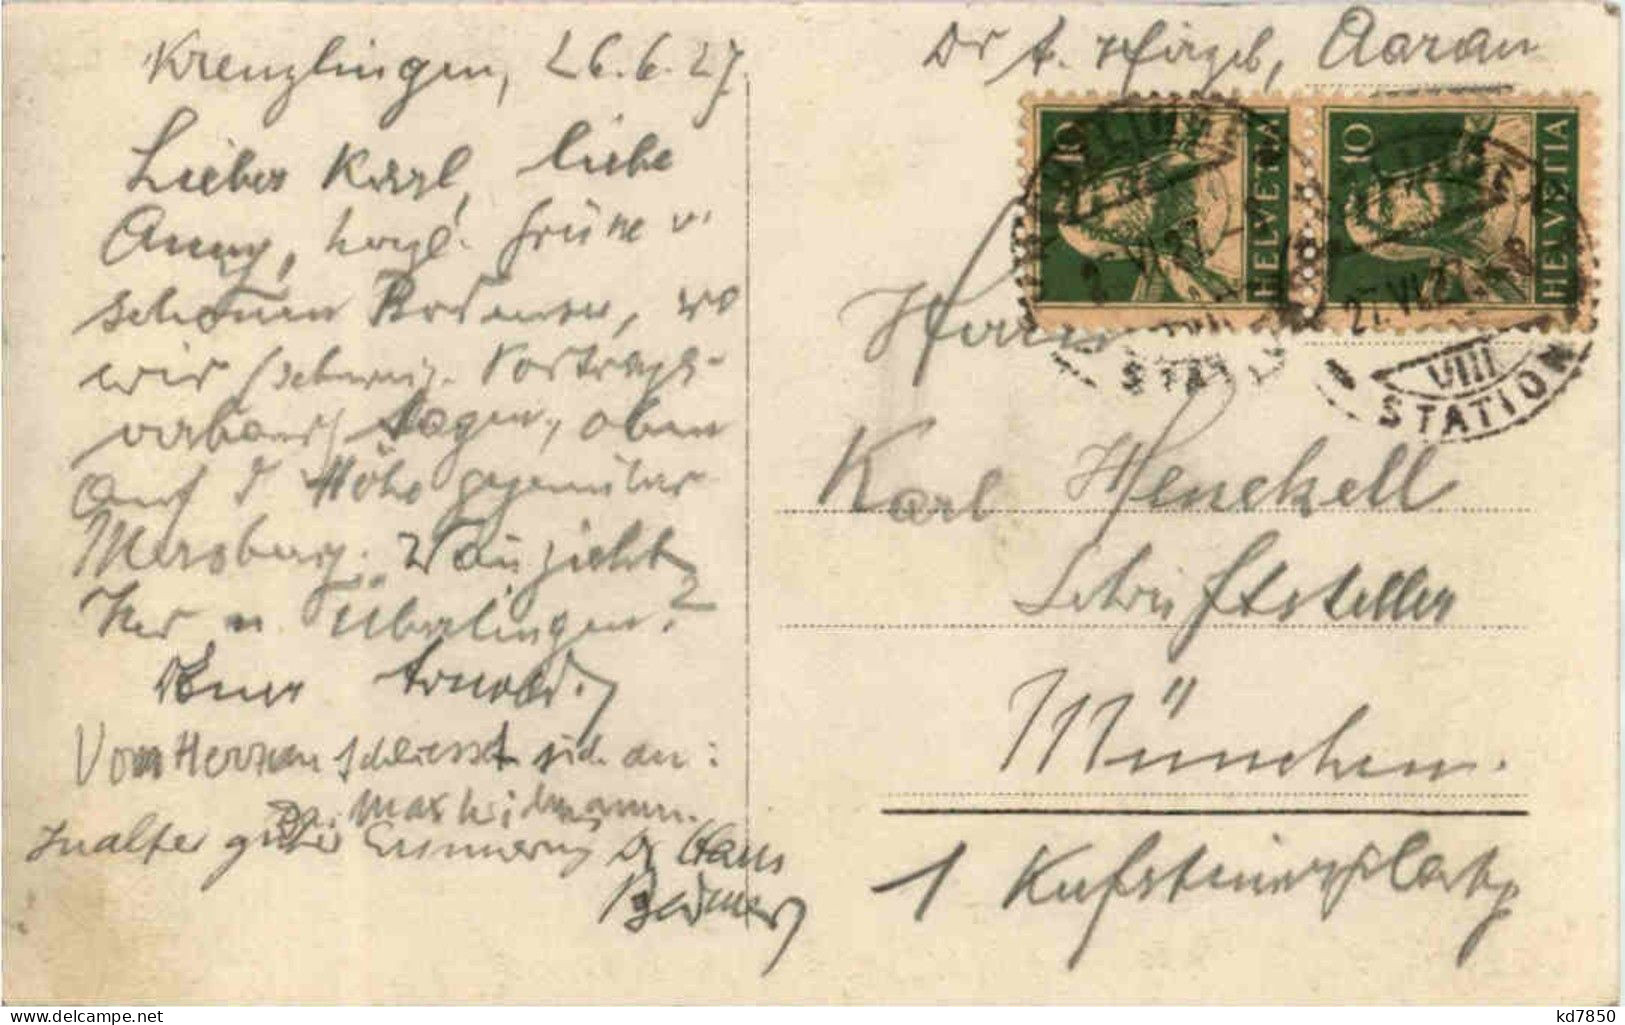 Kreuzlingen, 26.6.27.
Lieber Karl, liebe
Anny, herzl. Grüsse v.
schönen Bodensee, wo
wir (schweiz. Vortrags-
verband) tagen, oben
auf d. Höhe gegenüber
Mersburg. Wann zieht
Ihr n. Überlingen?
Euer Arnold.
Vom Herren schliesst sich an:
Dr. Max Widmann.
In alter guter Erinnerung Dr Hans
Bodmer
Dr A. Hirzel, Aarau
10 HELVETIA
10 HELVETIA
27.VI.27
VIII
STATION
Herrn
Karl Henckell
Schriftsteller
München.
1 Kufsteinerplatz
kd7850